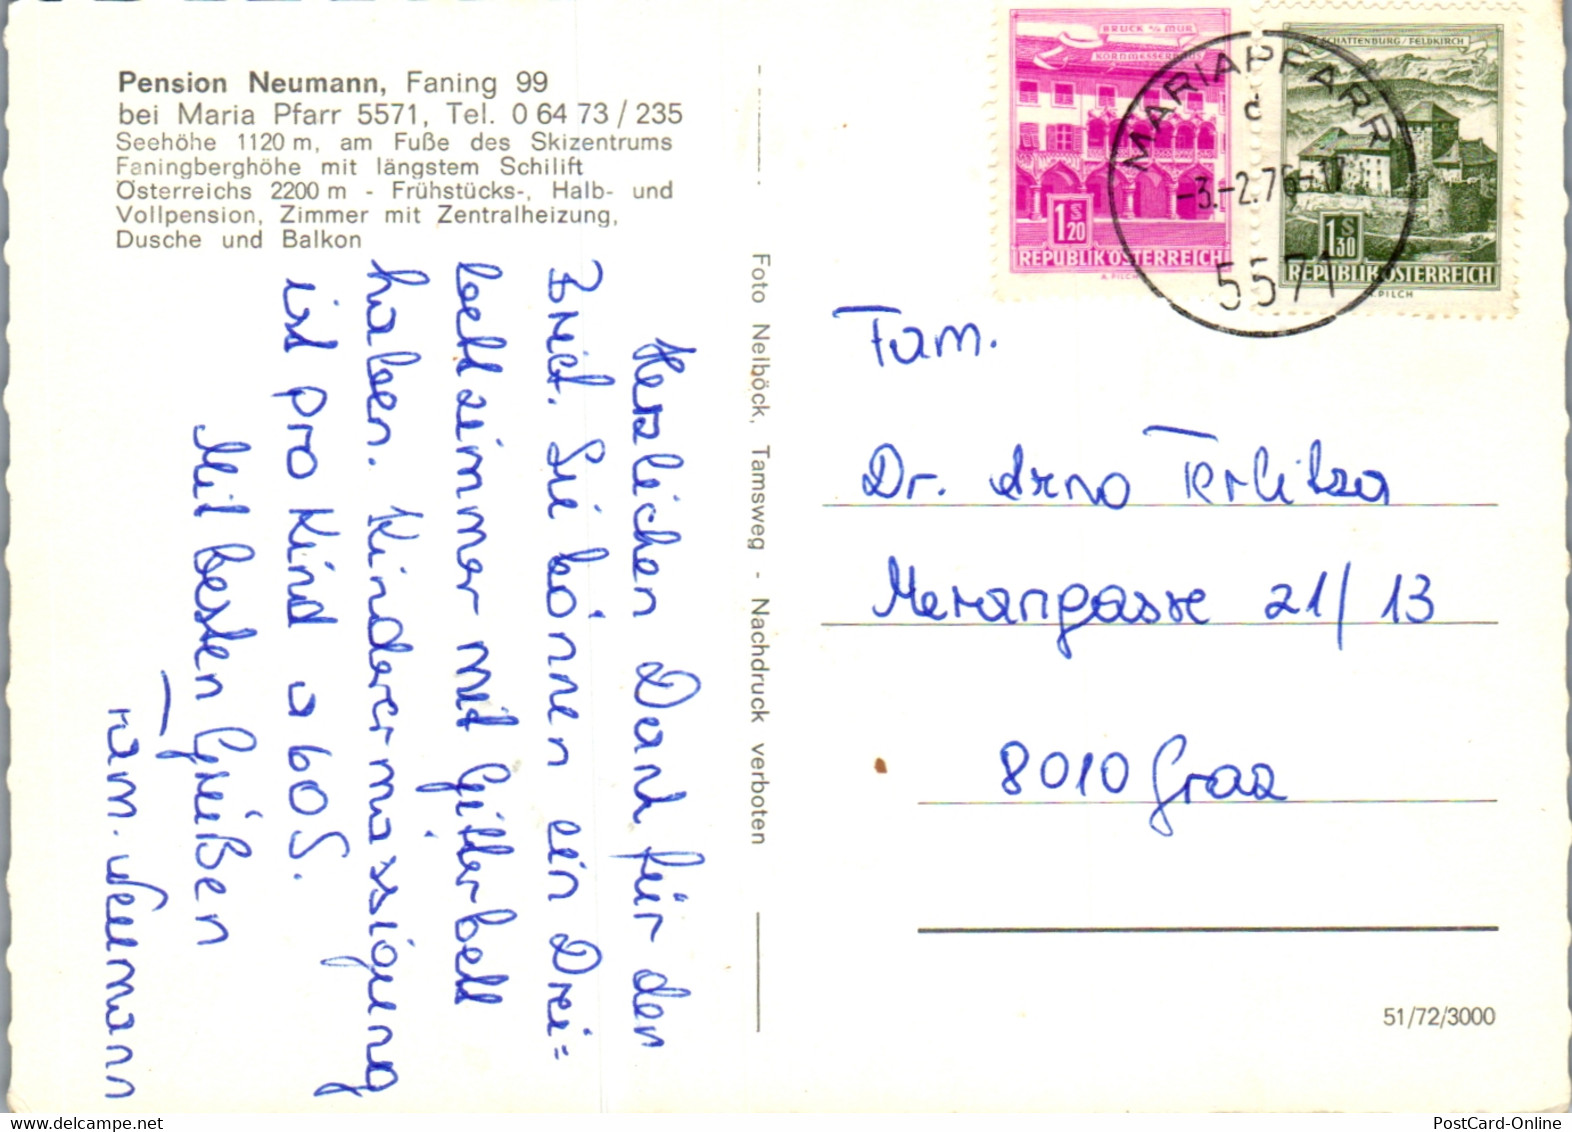 Pension Neumann, Faning 99
bei Maria Pfarr 5571, Tel. 0 64 73 / 235
Seehöhe 1120 m, am Fuße des Skizentrums
Faningberghöhe mit längstem Schilift
Österreichs 2200 m - Frühstücks-, Halb- und
Vollpension, Zimmer mit Zentralheizung,
Dusche und Balkon
Herzlichen Dank für den
Brief. Sie können ein Drei=
bettzimmer mit Gitterbett
haben. Kinderermässigung
ist pro Kind a 60 S.
Mit besten Grüßen
Fam. Neumann
Foto Nelböck, Tamsweg - Nachdruck verboten
BRUCK a/d MUR
KORNMESSERHAUS
1 S 20
REPUBLIK ÖSTERREICH
A. PILCH
SCHATTENBURG / FELDKIRCH
1 S 30
REPUBLIK ÖSTERREICH
A. PILCH
MARIAPFARR
c
-3.-2.76-17
5571
Fam.
Dr. Arno Terlitza
Merangasse 21/13
8010 Graz
51/72/3000
PostCard-Online